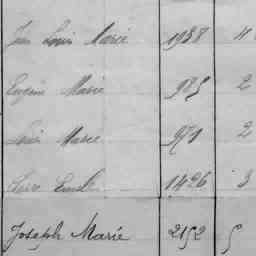 Jean Louis Marie 1958 4
Eugène Marie 985 2
Louis Marie 971 2
Pierre Emile 1426 3
Joseph Marie 2152 5